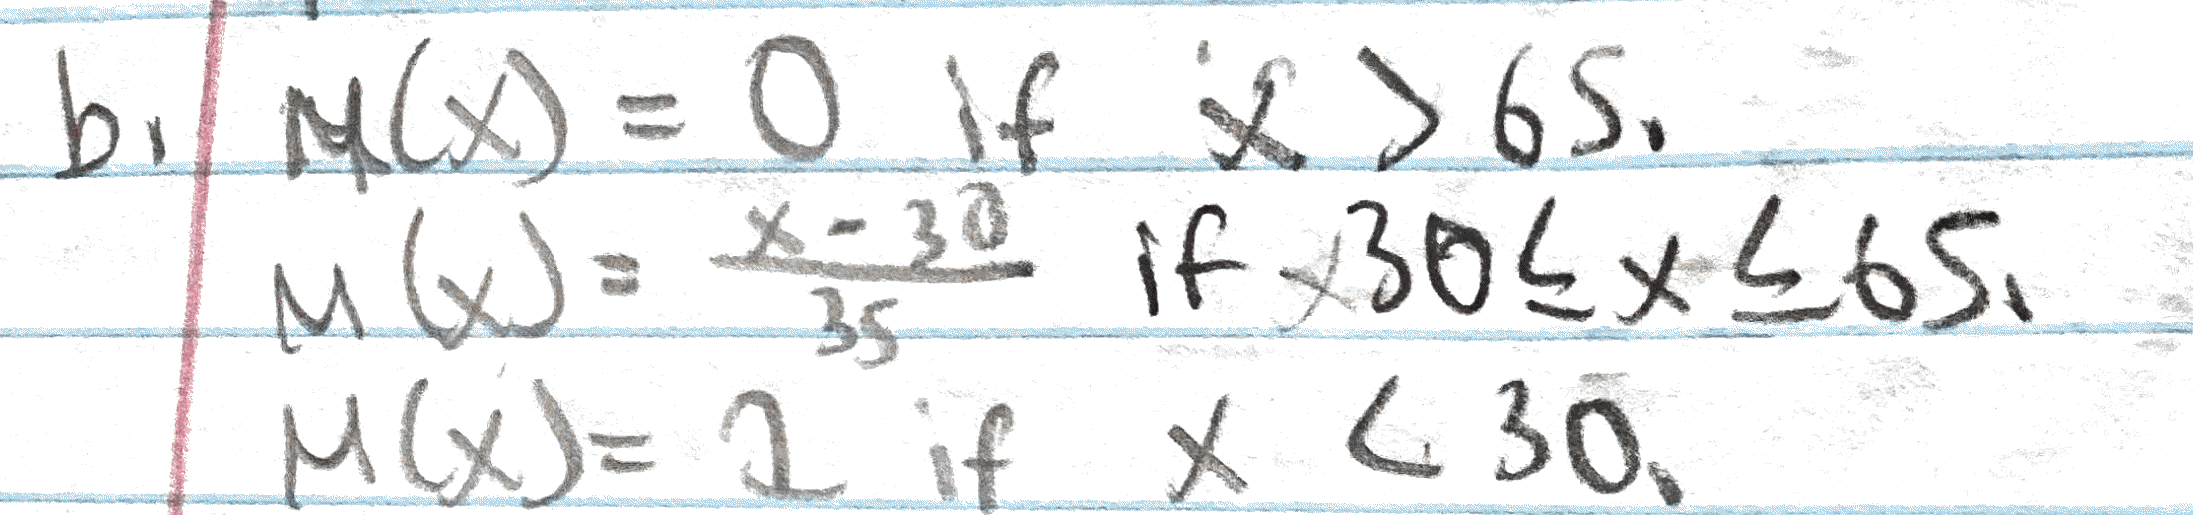 b. μ(x) = 0 if x > 65.
μ(x) = (x - 30)/35 if 30 ≤ x ≤ 65.
μ(x) = 1 if x < 30.